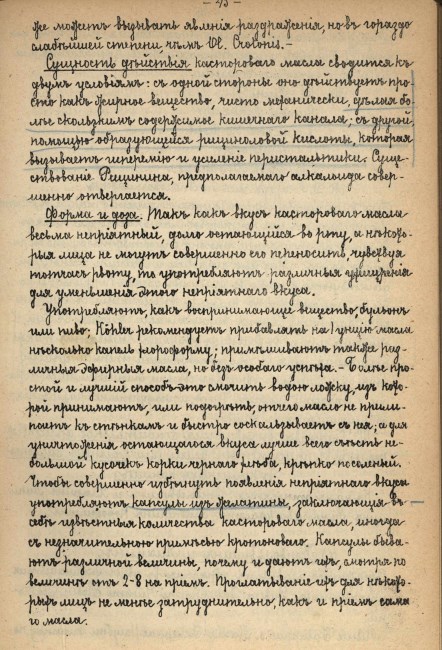 – 43 –
же можетъ вызывать явленія раздраженія, но въ гораздо
слабѣйшей степени, чѣмъ Ol. Crotonis. –
Сущность дѣйствія касторового масла сводится къ
двумъ условіямъ: съ одной стороны оно дѣйствуетъ про-
сто какъ жирное вещество, чисто механически, дѣлая бо-
лѣе скользкимъ содержимое кишечнаго канала; съ другой,
помощью образующейся рициноловой кислоты, которая
вызываетъ гиперемію и усиленіе перистальтики. Суще-
ствованіе Рицинина, предполагаемаго алкалоида совер-
шенно отвергается.
Форма и доза. Такъ какъ вкусъ касторового масла
весьма непріятный, долго остающійся во рту, а нѣкото-
рыя лица не могутъ совершенно его переносить, чувствуя
тотчасъ рвоту, то употребляютъ различныя ухищренія
для уменьшенія этого непріятнаго вкуса.
Употребляютъ, какъ воспринимающее вещество, бульонъ
или пиво; Köhler рекомендуетъ прибавлять на 1 унцію масла
нѣсколько капель хлороформу; примѣшиваютъ также раз-
личныя эфирныя масла, но безъ особаго успѣха. – Болѣе про-
стой и лучшій способъ – это смочить водою ложку, изъ кото-
рой принимаютъ, или подогрѣть, отчего масло не прили-
паетъ къ стѣнкамъ и быстро соскальзываетъ съ нея; а для
уничтоженія остающагося вкуса лучше всего съѣсть не-
большой кусочекъ корки чернаго хлѣба, крѣпко посоленый.
Чтобъ совершенно избѣгнуть появленія непріятнаго вкуса
употребляютъ капсулы изъ желатины, заключающія въ
себѣ извѣстныя количества касторового масла, иногда
съ незначительною примѣсью кротоноваго. Капсулы быва-
ютъ различной величины, почему и даютъ ихъ, смотря по
величинѣ отъ 2-8 на пріемъ. Проглатываніе ихъ для нѣкото-
рыхъ лицъ не менѣе затруднительно, какъ и пріемъ сама-
го масла.